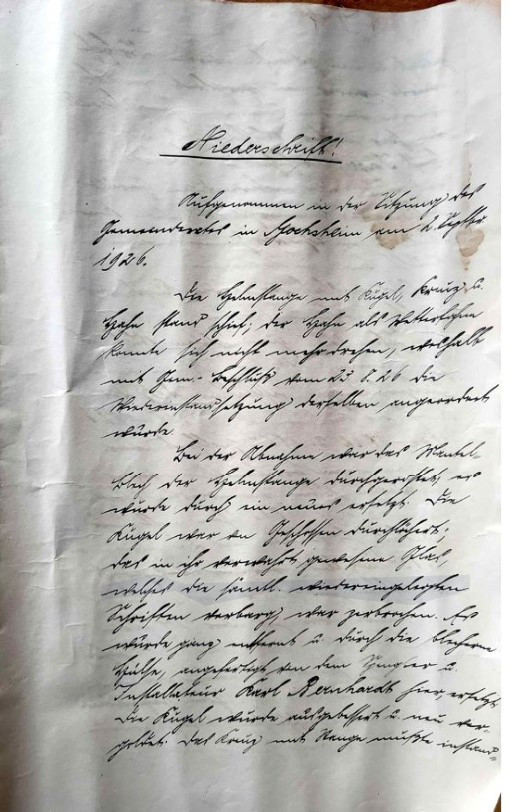 Niederschrift!
Aufgenommen in der Sitzung des
Gemeinderates in Hochstheim am 2. Septbr
1926.
Die Helmstange mit Kugel, Kreuz u.
Hahn stand schief; der Hahn als Wetterfahne
konnte sich nicht mehr drehen, weshalb
mit Gem.- Beschluß vom 23. 8. 26 die
Wiederinstandsetzung derselben angeordnet
wurde.
Bei der Abnahme war das Mantel-
blech der Helmstange durchgerostet; es
wurde durch ein neues ersetzt. Die
Kugel war von Geschossen durchlöchert;
das in ihr verwahrt gewesene Glas,
welches die sämtl. wiedereingelegten
Schriften verbarg, war zerbrochen. Es
wurde ganz entfernt u. durch die blecherne
Hülse, angefertigt von dem Spengler u.
Installateur Karl Bernhardt hier, ersetzt.
Die Kugel wurde ausgebessert u. neu ver-
goldet. Das Kreuz mit Stange mußte instand-